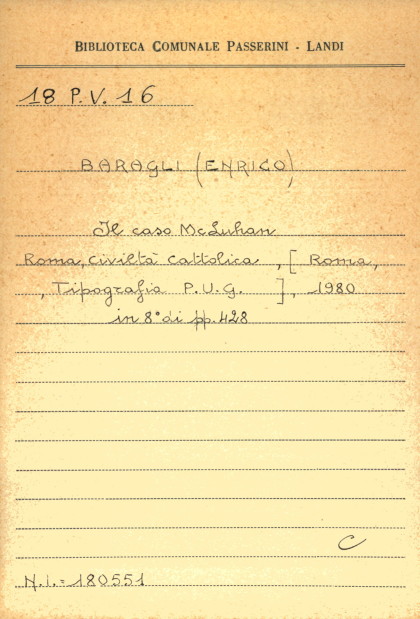 BIBLIOTECA COMUNALE PASSERINI - LANDI
18 P.V. 16
BARAGLI (ENRICO)
Il caso McLuhan
Roma, Civiltà Cattolica , [ Roma,
, Tipografia P.U.G. ], 1980
in 8° di pp. 428
C
N.I.= 180551